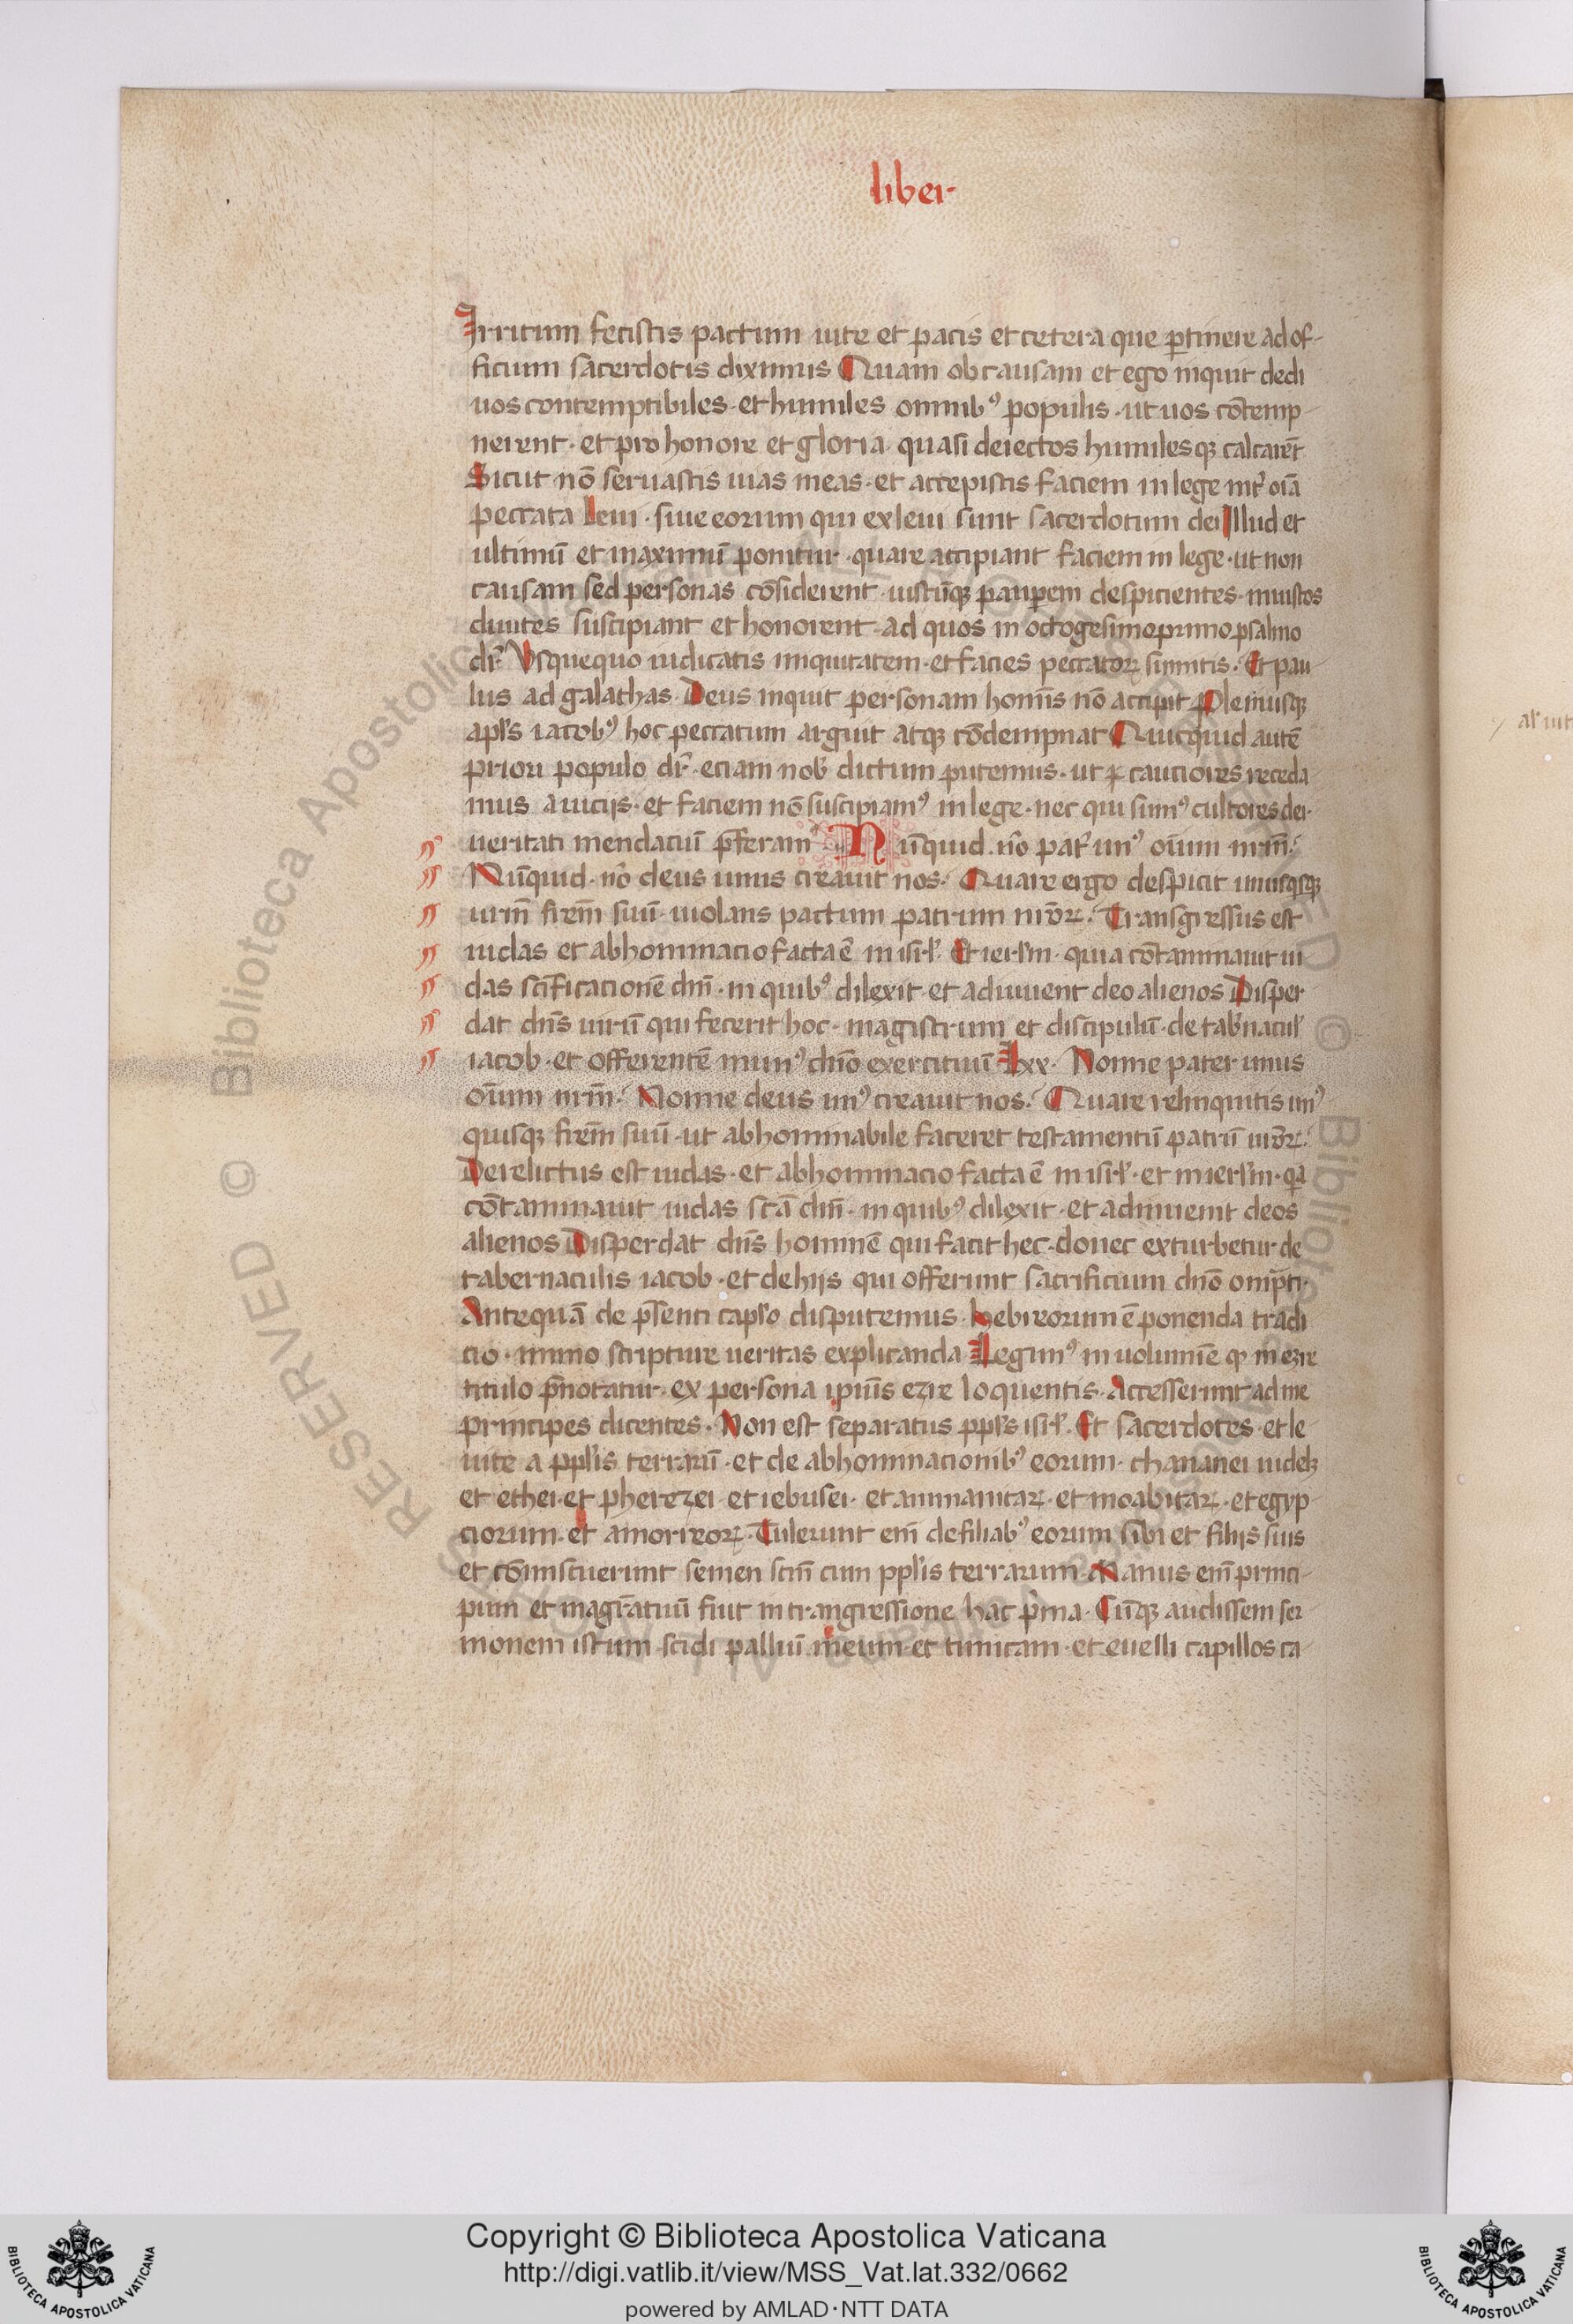 liber
Irritum fecistis pactum uite et pacis et cetera que ꝑtinere ad of-
ficium sacerdotis diximus Quam ob causam et ego inquit dedi
uos contemptibiles · et humiles omnibꝰ populis · ut uos cōtemp-
nerent · et pro honore et gloria quasi deiectos humilesqꝫ calcarēt
Sicut nō seruastis uias meas · et accepistis faciem in lege int̄ oīa
peccata leui · siue eorum qui ex leui sunt sacerdotum dei Illud et
ultimū et maximū ponitur · quare accipiant faciem in lege · ut non
causam sed personas cōsiderent · iustūqꝫ pauꝑem despicientes · iniustos
diuites suscipiant et honorent · ad quos in octogesimo primo psalmo
dr̄ Vsquequo iudicatis iniquitatem · et facies peccatoꝝ sumitis · Et pau-
lus ad galathas Deus inquit personam homīs nō accipit Pleniusqꝫ
apl̄s iacobꝰ hoc peccatum arguit atqꝫ cōdempnat Quicquid autē
priori populo dr̄ · eciam nob̄ dictum putemus · ut cauciores receda-
mus a uicijs · et faciem nō suscipiamꝰ in lege · nec qui sumꝰ cultores dei ·
ueritati mendaciū p̄feramꝰ Nūquid nō pat̄ unꝰ oīum nrm̄ ·
Nūquid · nō deus unus creauit nos · Quare ergo despicit unusqsqꝫ
urm̄ frem̄ suū · uiolans pactum patrum nr̄oꝝ · Transgressus est
iudas et abhominacio facta ē in isrl̄ · Et ierl̄m · quia cōtaminauit iu-
das scīficacionē dnī · in quibꝰ dilexit · et adinuent deo alienos Disper-
dat dn̄s uirū qui fecerit hoc · magistrum et discipulū · de tab̄nacul̄
iacob · et offerentē munꝰ dnō exercituū Lxx · Nonne pater unus
oīum nrm̄ · Nonne deus unꝰ creauit nos · Quare relinquitis unꝰ
quisqꝫ frem̄ suū · ut abhominabile faceret testamentū patrū nr̄oꝝ ·
Derelictus est iudas · et abhominacio facta ē in isrl̄ · et in ierl̄m · qa
cōtaminauit iudas scā dnī · in quibꝰ dilexit · et adinuenit deos
alienos Disperdat dn̄s hominē qui facit hec · donec exturbetur de
tabernaculis iacob · et de hijs qui offerunt sacrificium dnō omp̄ti ·
Antequā de p̄senti caplō disputemus · hebreorum ē ponenda tradi
cio · immo scripture ueritas explicanda Legimꝰ in uolumīe qͦ in ezre
titulo p̄notatur · ex persona ipius ezre loquentis · Accesserunt ad me
principes dicentes · Non est separatus ppl̄s isrl̄ · Et sacerdotes · et le
uite a ppl̄is terrarū · et de abhominacionibꝰ eorum · chananei uidelꝫ
et ethei · et pherezei · et iebusei · et ammanitaꝝ · et moabitaꝝ · et egyp-
ciorum · et amorreoꝝ · Tulerunt enī de filiabꝰ eorum sibi et filijs suis
et cōmiscuerunt semen scm̄ cum ppl̄is terrarum · Manus enī princi-
pum et magr̄atuū fuit in trangressione hac p̄ma · Cūqꝫ audissem ser
monem istum · scidi palliū meum · et tunicam · et euelli capillos ca-
Copyright © Biblioteca Apostolica Vaticana
http://digi.vatlib.it/view/MSS_Vat.lat.332/0662
powered by AMLAD·NTT DATA